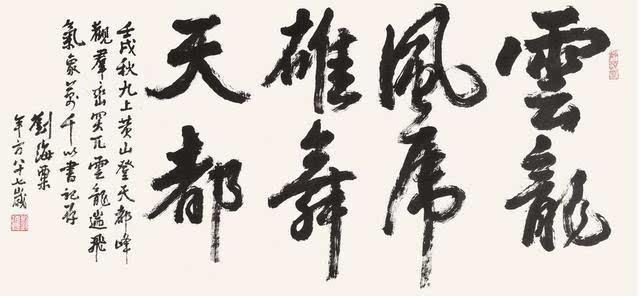 雲龍
風虎
雄舞
天都
壬戌秋九上黄山登天都峰
觀羣峦突兀雲龍遄飛
氣象萬千以書記存
劉海粟
年方八十七歲